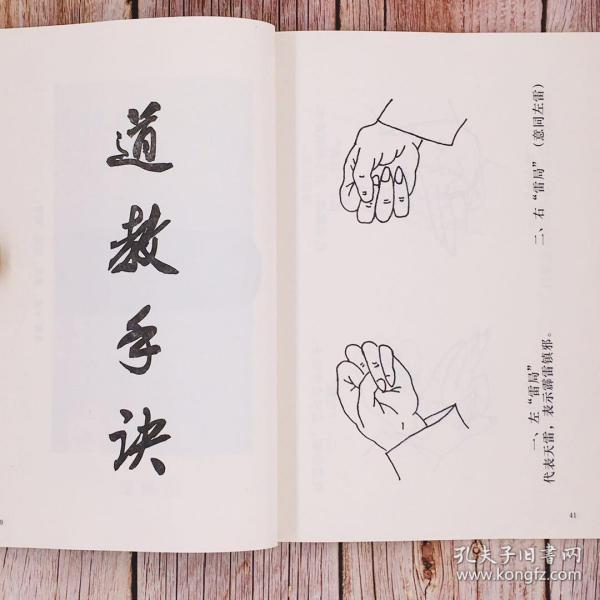 道教手诀
一、左“雷局”
代表天雷，表示霹雷镇邪。
二、右“雷局”（意同左雷）
41
孔夫子旧书网
www.kongfz.com